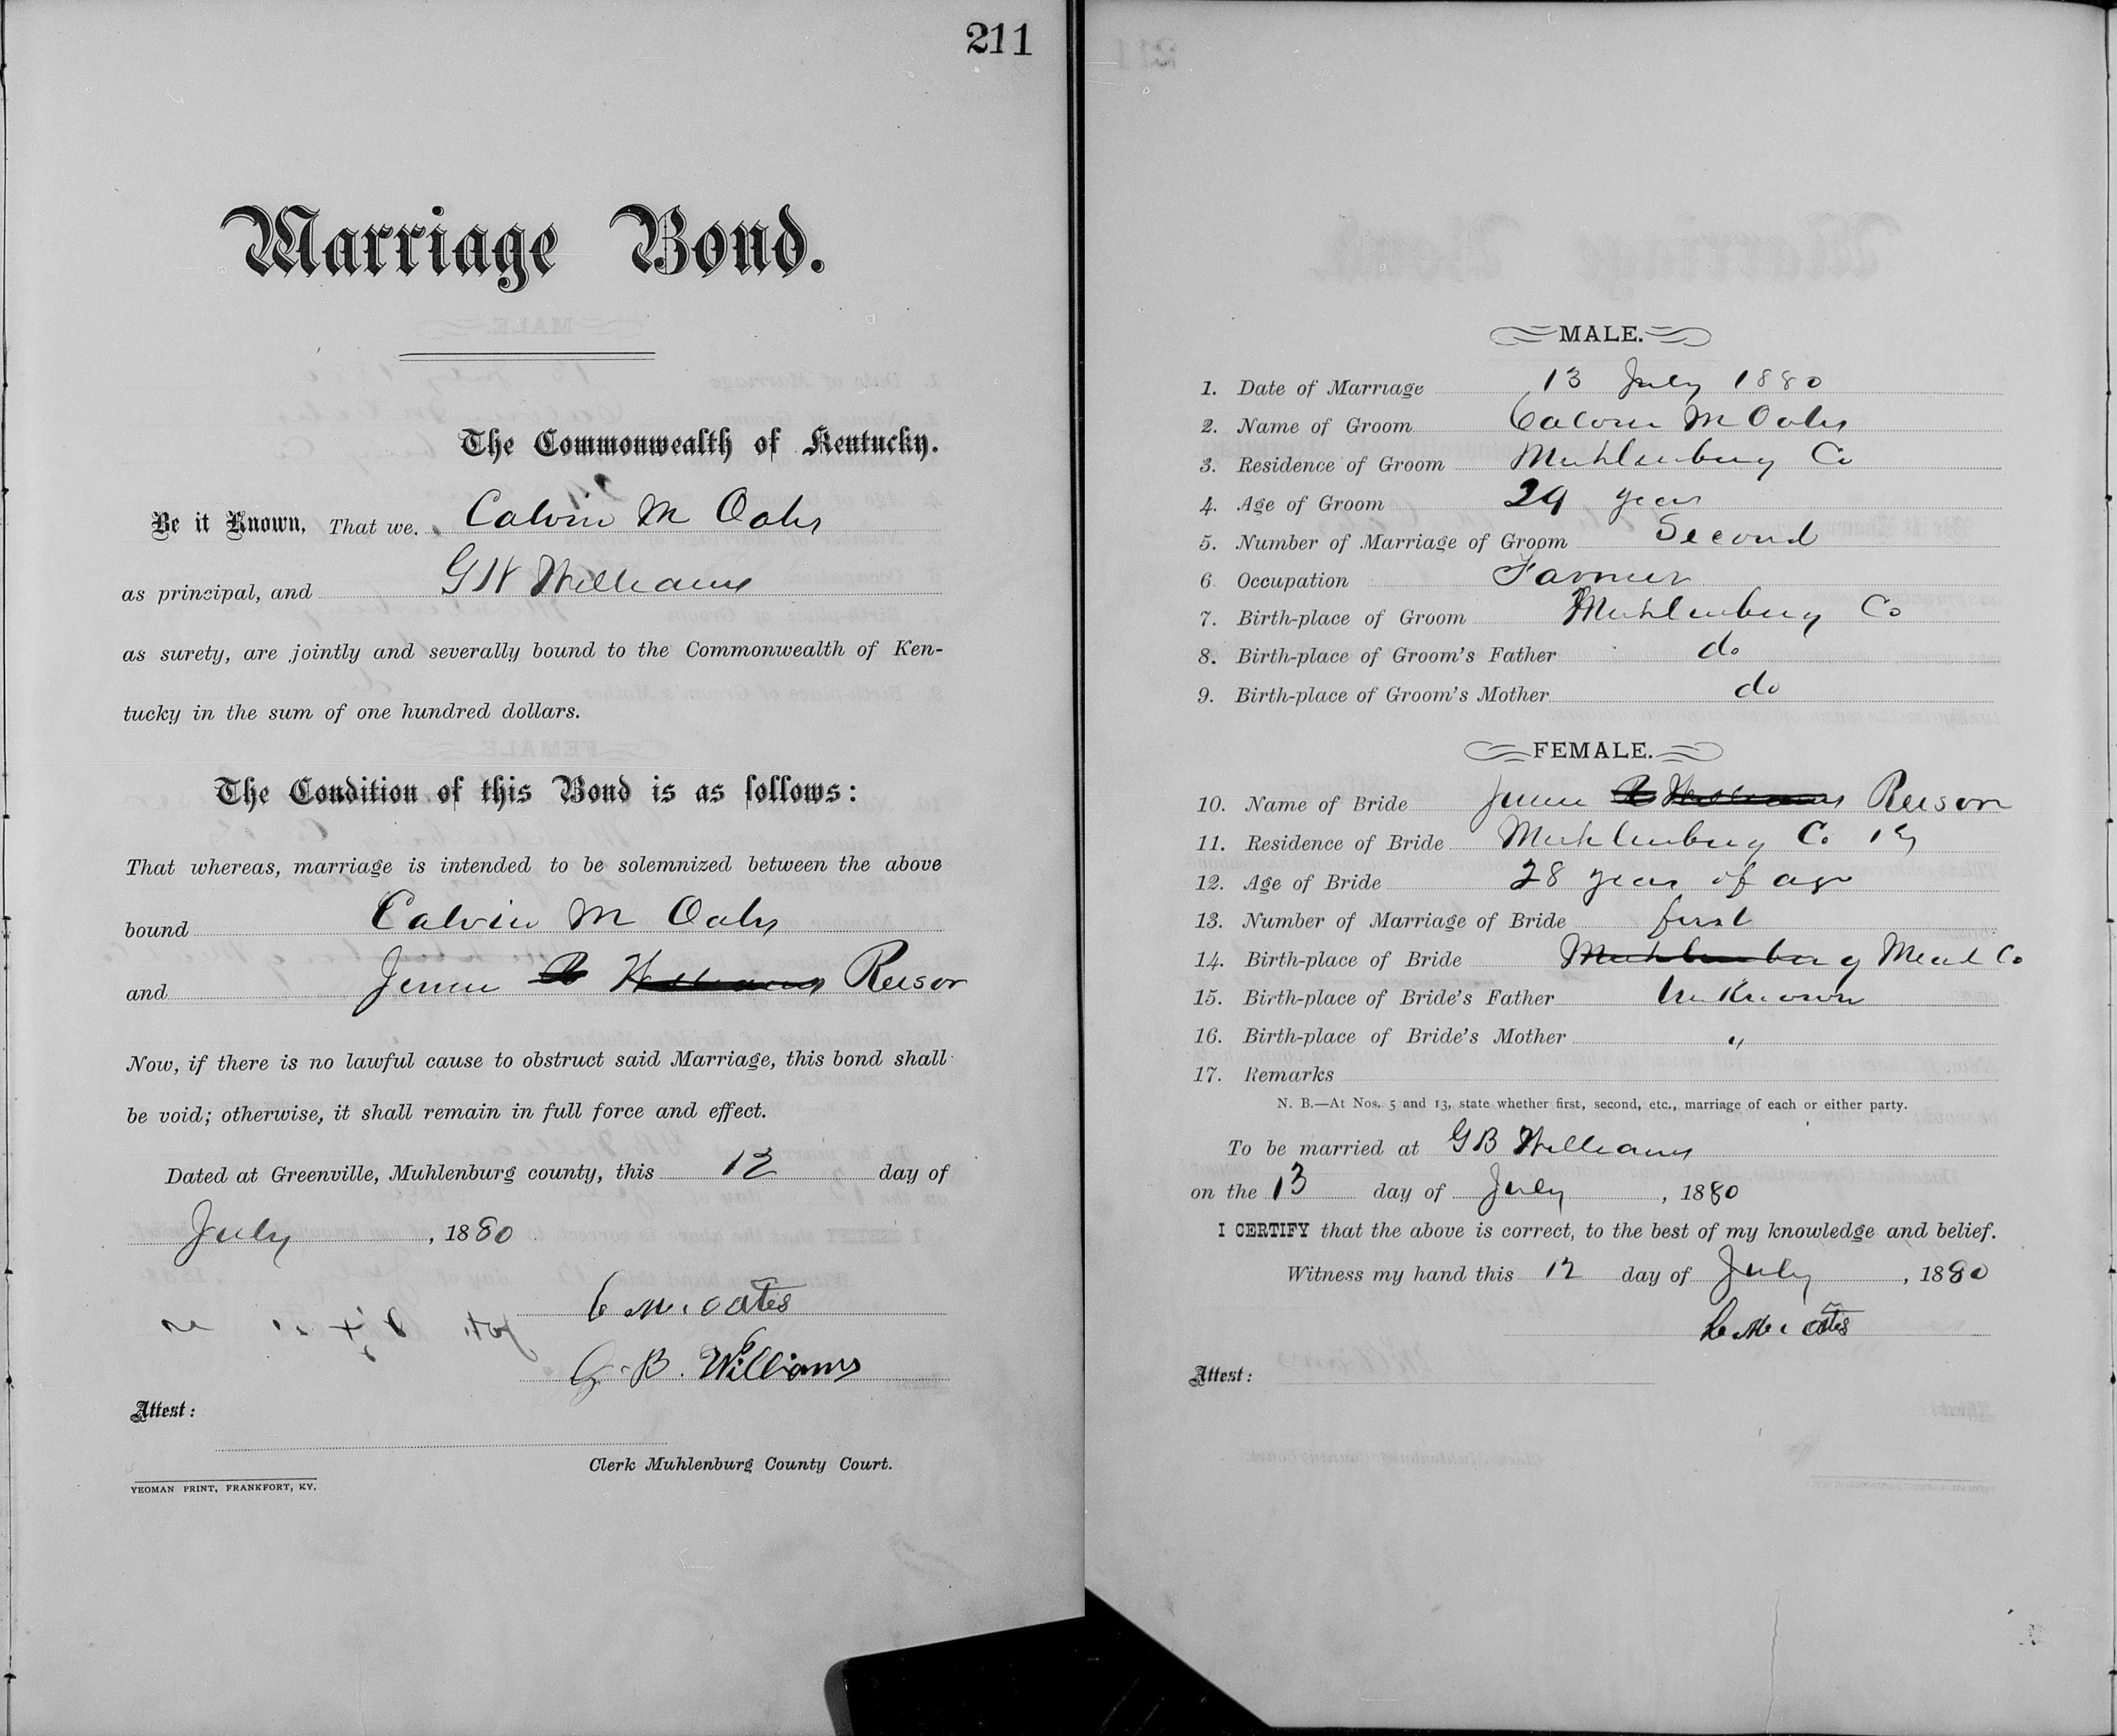 211
Marriage Bond.
The Commonwealth of Kentucky.
Be it Known, That we, Calvin M Oates
as principal, and G W Williams
as surety, are jointly and severally bound to the Commonwealth of Ken-
tucky in the sum of one hundred dollars.
The Condition of this Bond is as follows:
That whereas, marriage is intended to be solemnized between the above
bound Calvin M Oates
and Jennie Williams Reisor
Now, if there is no lawful cause to obstruct said Marriage, this bond shall
be void; otherwise, it shall remain in full force and effect.
Dated at Greenville, Muhlenburg county, this 12 day of
July, 1880
C M. Oates
G. B. Williams
Attest:
Clerk Muhlenburg County Court.
YEOMAN PRINT, FRANKFORT, KY.
MALE.
1. Date of Marriage 13 July 1880
2. Name of Groom Calvin M Oates
3. Residence of Groom Muhlenburg Co
4. Age of Groom 29 years
5. Number of Marriage of Groom Second
6. Occupation Farmer
7. Birth-place of Groom Muhlenburg Co
8. Birth-place of Groom's Father do
9. Birth-place of Groom's Mother do
FEMALE.
10. Name of Bride Jennie Williams Reison
11. Residence of Bride Muhlenburg Co Ky
12. Age of Bride 28 years of age
13. Number of Marriage of Bride first
14. Birth-place of Bride Muhlenburg Mead Co
15. Birth-place of Bride's Father Unknown
16. Birth-place of Bride's Mother "
17. Remarks
N. B.—At Nos. 5 and 13, state whether first, second, etc., marriage of each or either party.
To be married at G B Williams
on the 13 day of July, 1880
I CERTIFY that the above is correct, to the best of my knowledge and belief.
Witness my hand this 12 day of July, 1880
C. M. Oates
Attest: